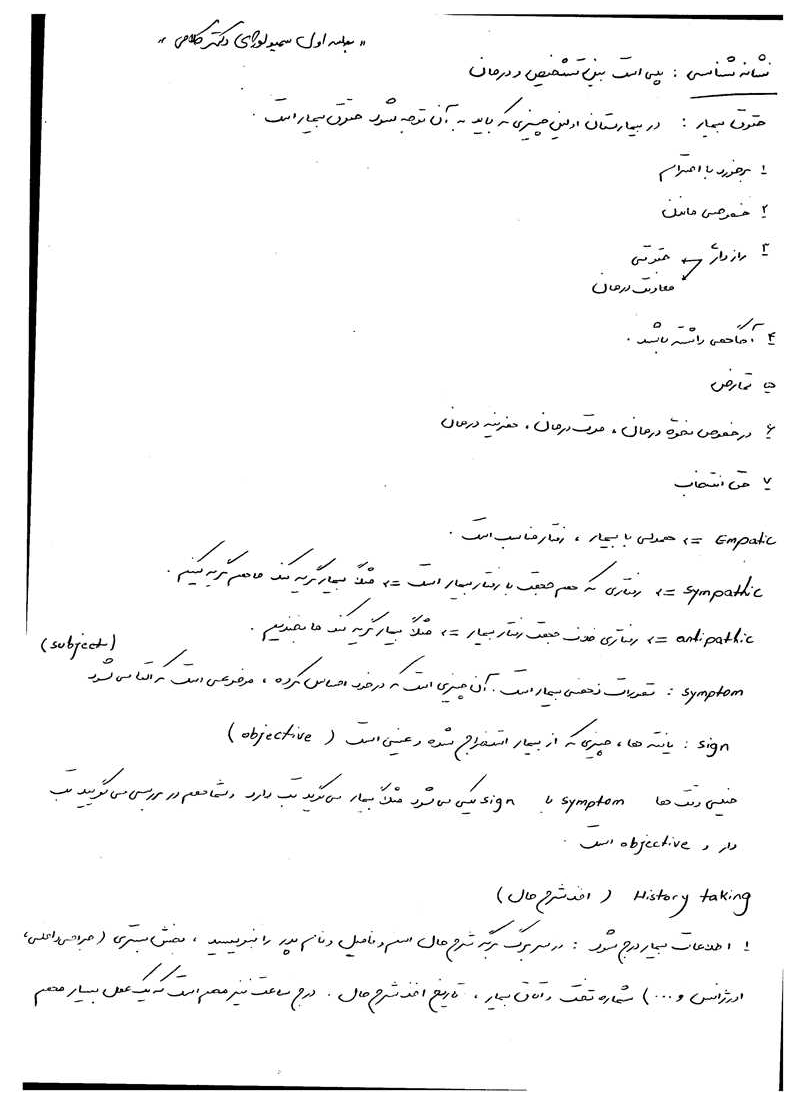 « جلسه اول سمیولوژی دکتر غلامی »
نشانه شناسی : پلی است بین تشخیص و درمان
حقوق بیمار : در بیمارستان اولین چیزی که باید به آن توجه شود حقوق بیمار است .
۱ برخورد با احترام
۲ خصوصی ماندن
۳ رازداری حقوقی
معاونت درمان
۴ آگاهی داشته باشد .
۵ تعارض
۶ در خصوص نحوه درمان ، مدت درمان ، هزینه درمان
۷ حق انتخاب
Empatic => همدلی با بیمار ، رفتار مناسب است .
sympathic => رفتاری که هم جهت با رفتار بیمار است => مثلاً بیمار گریه کند ما هم گریه کنیم .
antipathic => رفتاری خلاف جهت رفتار بیمار => مثلاً بیمار گریه کند ما بخندیم .
(subject)
symptom : تصورات ذهنی بیمار است . آن چیزی است که در خود احساس کرده ، موضوعی است که القا می شود
sign : یافته ها ، چیزی که از بیمار استخراج شده و عینی است ( objective )
خیلی وقت ها symptom با sign یکی می شود مثلاً بیمار می گوید تب دارد و شما هم در بررسی می گویید تب
دار و objective است .
History taking ( اخذ شرح حال )
۱ اطلاعات بیمار درج شود : در سر برگ برگه شرح حال اسم و فامیل و نام پدر را بنویسید ، بخش بستری ( جراحی داخلی ،
اورژانس و ... ) شماره تخت و اتاق بیمار ، تاریخ اخذ شرح حال . درج ساعت نیز مهم است که یک عمل بسیار مهم